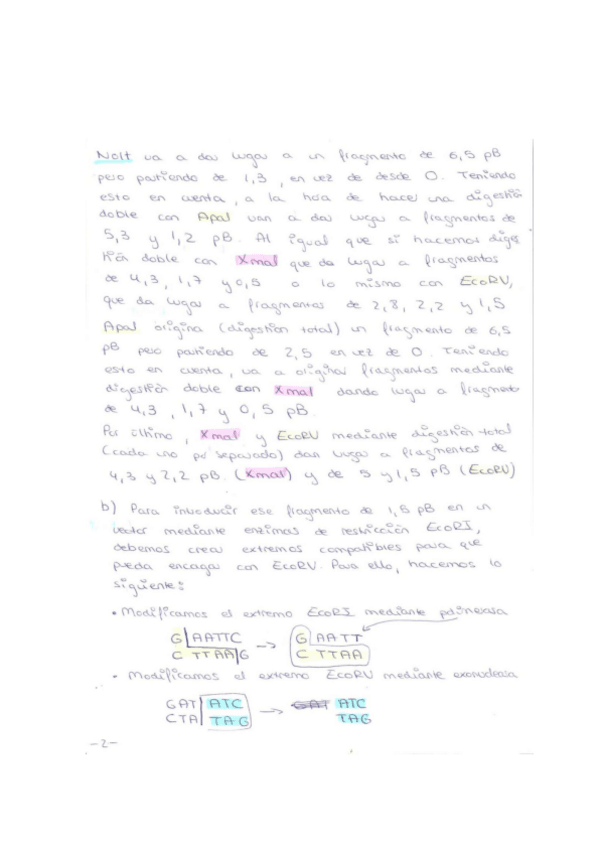 NotI va a dar lugar a un fragmento de 6,5 pB
pero partiendo de 1,3, en vez de desde 0. Teniendo
esto en cuenta, a la hora de hacer una digestión
doble con ApaI van a dar lugar a fragmentos de
5,3 y 1,2 pB. Al igual que si hacemos diges
tión doble con XmaI que da lugar a fragmentos
de 4,3, 1,7 y 0,5 o lo mismo con EcoRV,
que da lugar a fragmentos de 2,8, 2,2 y 1,5
ApaI origina (digestión total) un fragmento de 6,5
pB pero partiendo de 2,5 en vez de 0. Teniendo
esto en cuenta, va a originar fragmentos mediante
digestión doble con XmaI dando lugar a fragmento
de 4,3, 1,7 y 0,5 pB.
Por último, XmaI y EcoRV mediante digestión total
(cada uno por separado) dan lugar a fragmentos de
4,3 y 2,2 pB. (XmaI) y de 5 y 1,5 pB (EcoRV)
b) Para introducir ese fragmento de 1,5 pB en un
vector mediante enzimas de restricción EcoRI,
debemos crear extremos compatibles para que
pueda encajar con EcoRV. Para ello, hacemos lo
siguiente:
• Modificamos el extremo EcoRI mediante polimerasa
G AATTC → G AATT
C TTAA G C TTAA
• Modificamos el extremo EcoRV mediante exonucleasa
GAT ATC → GAT ATC
CTA TAG TAG
-2-